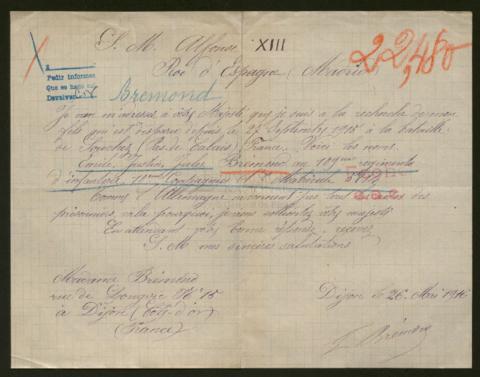 S. M. Alfonse XIII
Roi d'Espagne (Madrid)
22,480
A
Pedir informes
Que se haga
Devolvan
Bremond
Je viens à votre Majesté, que je suis à la recherche de mon
fils qui est disparu depuis le 27 Septembre 1915 à la bataille
de Souchez (Pas de Calais) France. Voici les noms.
Emile, Justin, Jules Brémond au 109me régiment
d'infanterie, 11me Compagnie Matricule
Comme l'Allemagne ne donnent pas tout les noms des
prisonniers voilà pourquoi, je viens votre majesté
En attendant une bonne réponse, recevez
S. M. mes sincères salutations
Madame Brémond
rue de Longvic No 15
à Dijon (Côte-d'or)
(France)
Dijon le 26 Mai 1916
Brémond